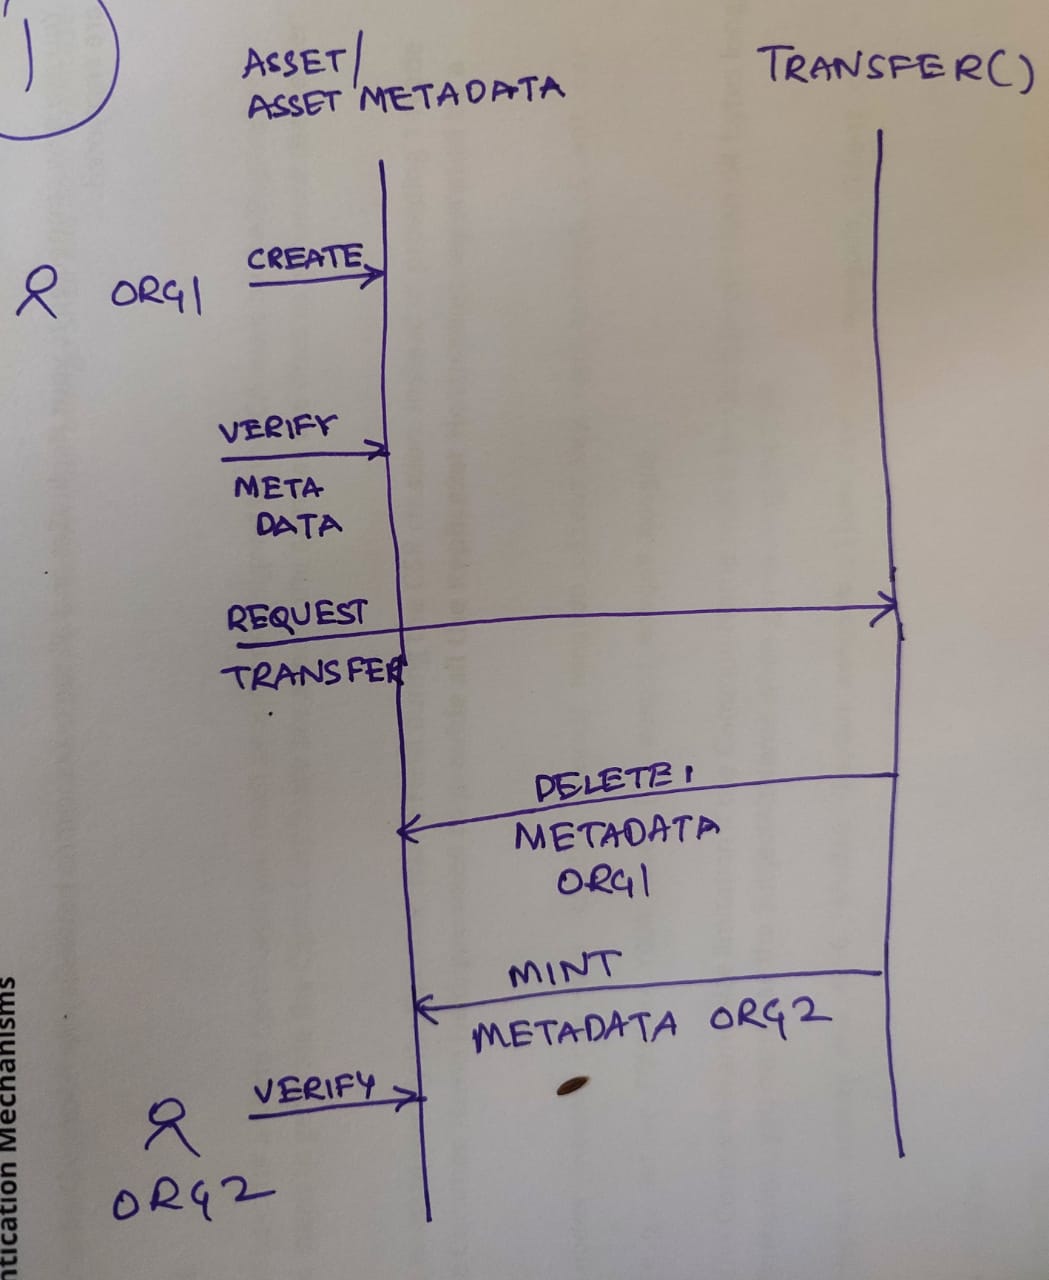 1
ASSET/
ASSET METADATA
TRANSFER()
CREATE
ORG1
VERIFY
META
DATA
REQUEST
TRANSFER
DELETE
METADATA
ORG1
MINT
METADATA ORG2
VERIFY
ORG2
ntication Mechanisms